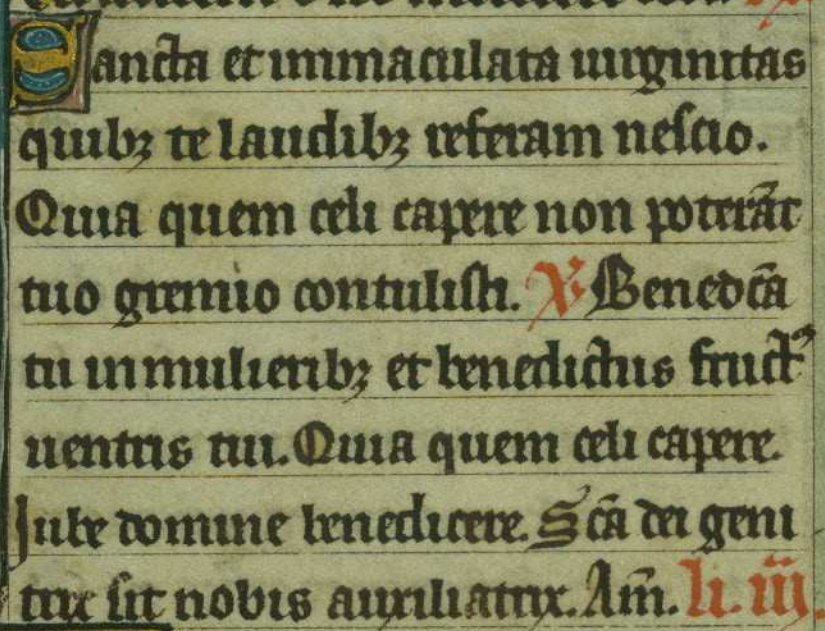 Sancta et immaculata uirginitas
quibꝫ te laudibꝫ referam nescio.
Quia quem celi capere non poterāt
tuo gremio contulisti. ℣ Benedc̄a
tu in mulieribꝫ et benedictus fructꝰ
uentris tui. Quia quem celi capere.
Iube domine benedicere. Sc̄a dei geni
trix sit nobis auxiliatrix. Am̄. li. iii.